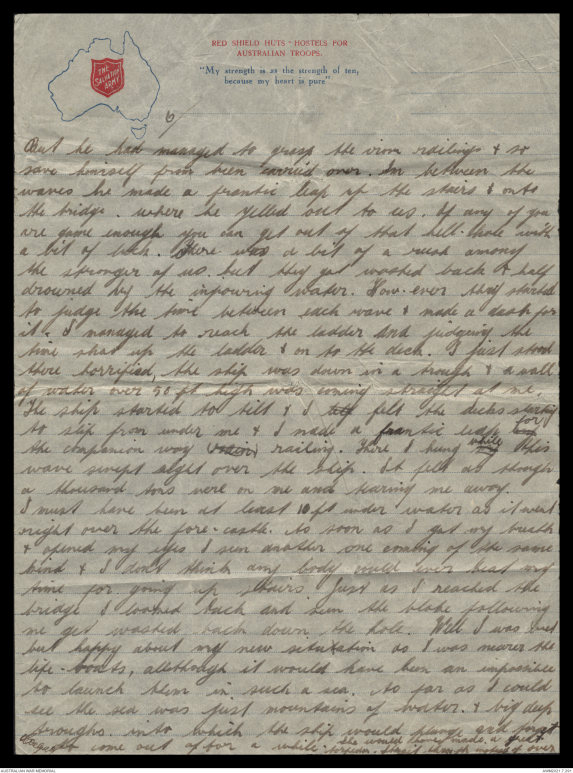 RED SHIELD HUTS & HOSTELS FOR
AUSTRALIAN TROOPS.
"My strength is as the strength of ten,
because my heart is pure"
THE
SALVATION
ARMY
6/
But he had managed to grasp the iron railings & so
save himself from been carried over. In between the
waves he made a frantic leap up the stairs & onto
the bridge. where he yelled out to us. If any of you
are game enough you can get out of that hell-hole with
a bit of luck. There was a bit of a rush among
the stronger of us. but they got washed back & half
drowned by the inpouring water. How-ever they started
to judge the time between each wave & made a dash for
it. I managed to reach the ladder and judgeing the
time shot up the ladder & on to the deck. I just stood
there horrified, the ship was down in a trough & a wall
of water over 50 ft high was coming straight at me.
The ship started to tilt & I felt the decks starting
to slip from under me & I made a frantic leap for
the companion way railing. There I hung while this
wave swept right over the ship. It felt as though
a thousand tons were on me and tearing me away.
I must have been at least 10 ft under water as it went
right over the fore-castle. As soon as I got my breath
& opened my eyes I seen another one coming of the same
kind & I don't think any body could ever beat my
time for going up stairs. Just as I reached the
bridge I looked back and seen the bloke following
me get washed back down the hole. Well I was wet
but happy about my new situtation as I was nearer the
life-boats, allthough it would have been an impossible
to launch them in such a sea. As far as I could
see the sea was just mountains of water & big deep
troughs into which the ship would plunge and forget
to come out of for a while. she would have made a great
torpedo. straight through instead of over
AUSTRALIAN WAR MEMORIAL